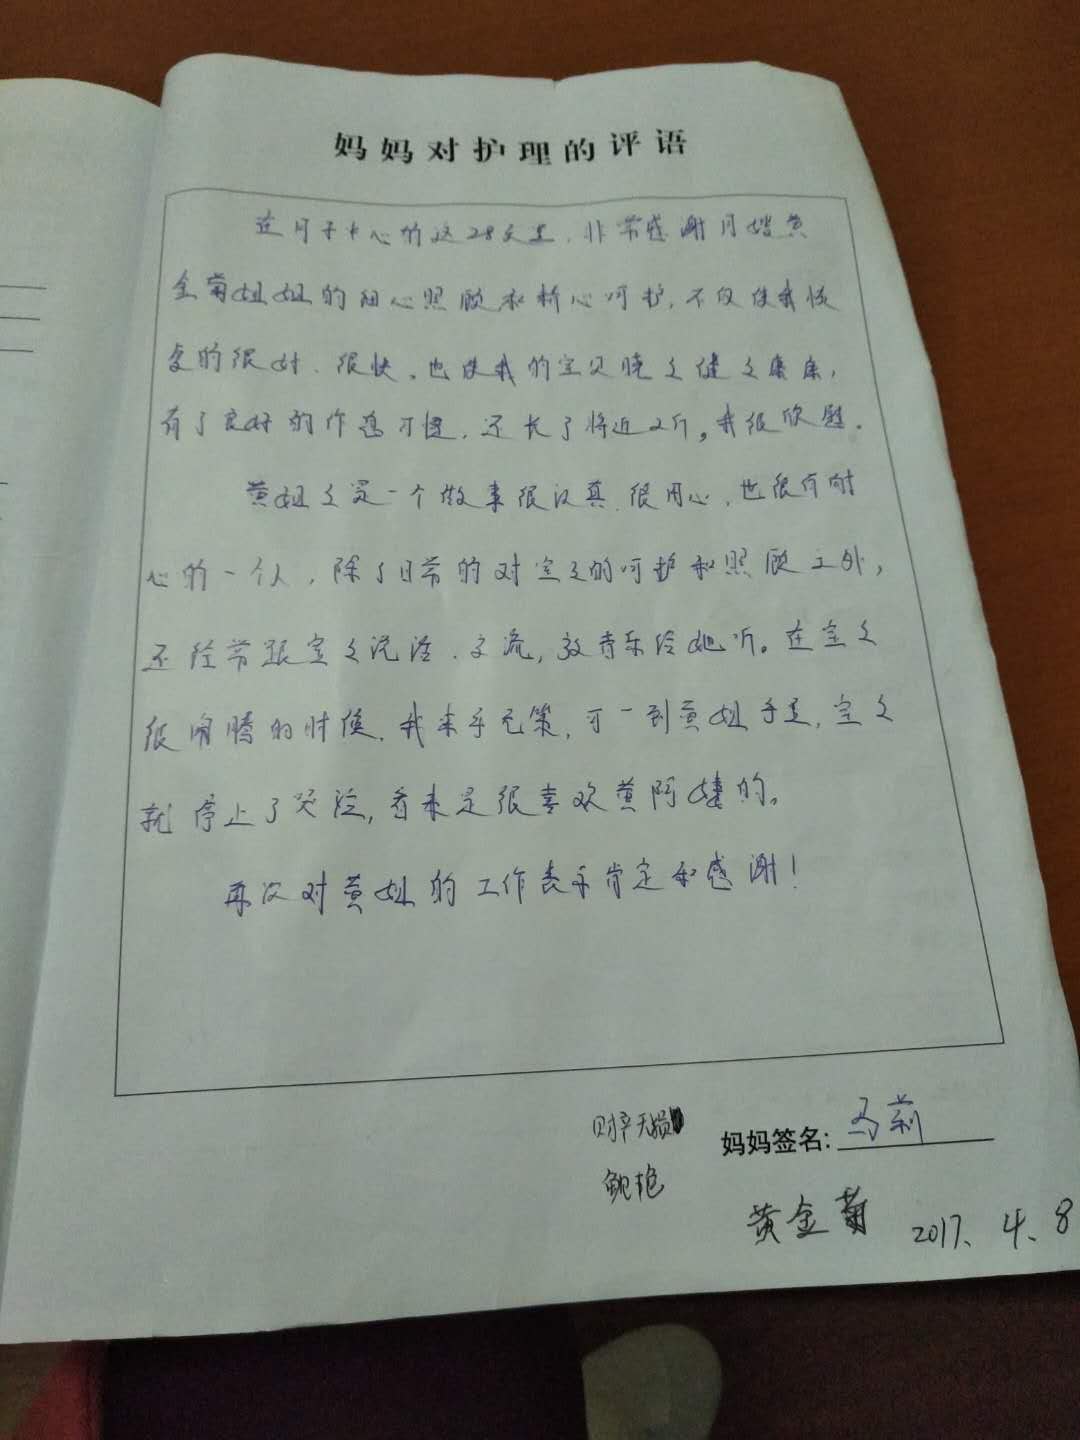 妈妈对护理的评语
在月子中心的这28天里，非常感谢月嫂黄
金菊姐姐的细心照顾和精心呵护，不仅使我恢
复的很好、很快，也使我的宝贝晓文健文康康，
有了良好的作息习惯，还长了将近2斤。我很欣慰。
黄姐文是一个做事很认真、很用心，也很有耐
心的一个人，除了日常的对宝文的呵护和照顾工外，
还经常跟宝文说话、交流，放音乐给她听。在宝文
很闹腾的时候，我束手无策，可一到黄姐手里，宝文
就停止了哭泣，看来是很喜欢黄阿姨的。
再次对黄姐的工作表示肯定和感谢！
财产无损
妈妈签名: 马莉
黄金菊 2017.4.8